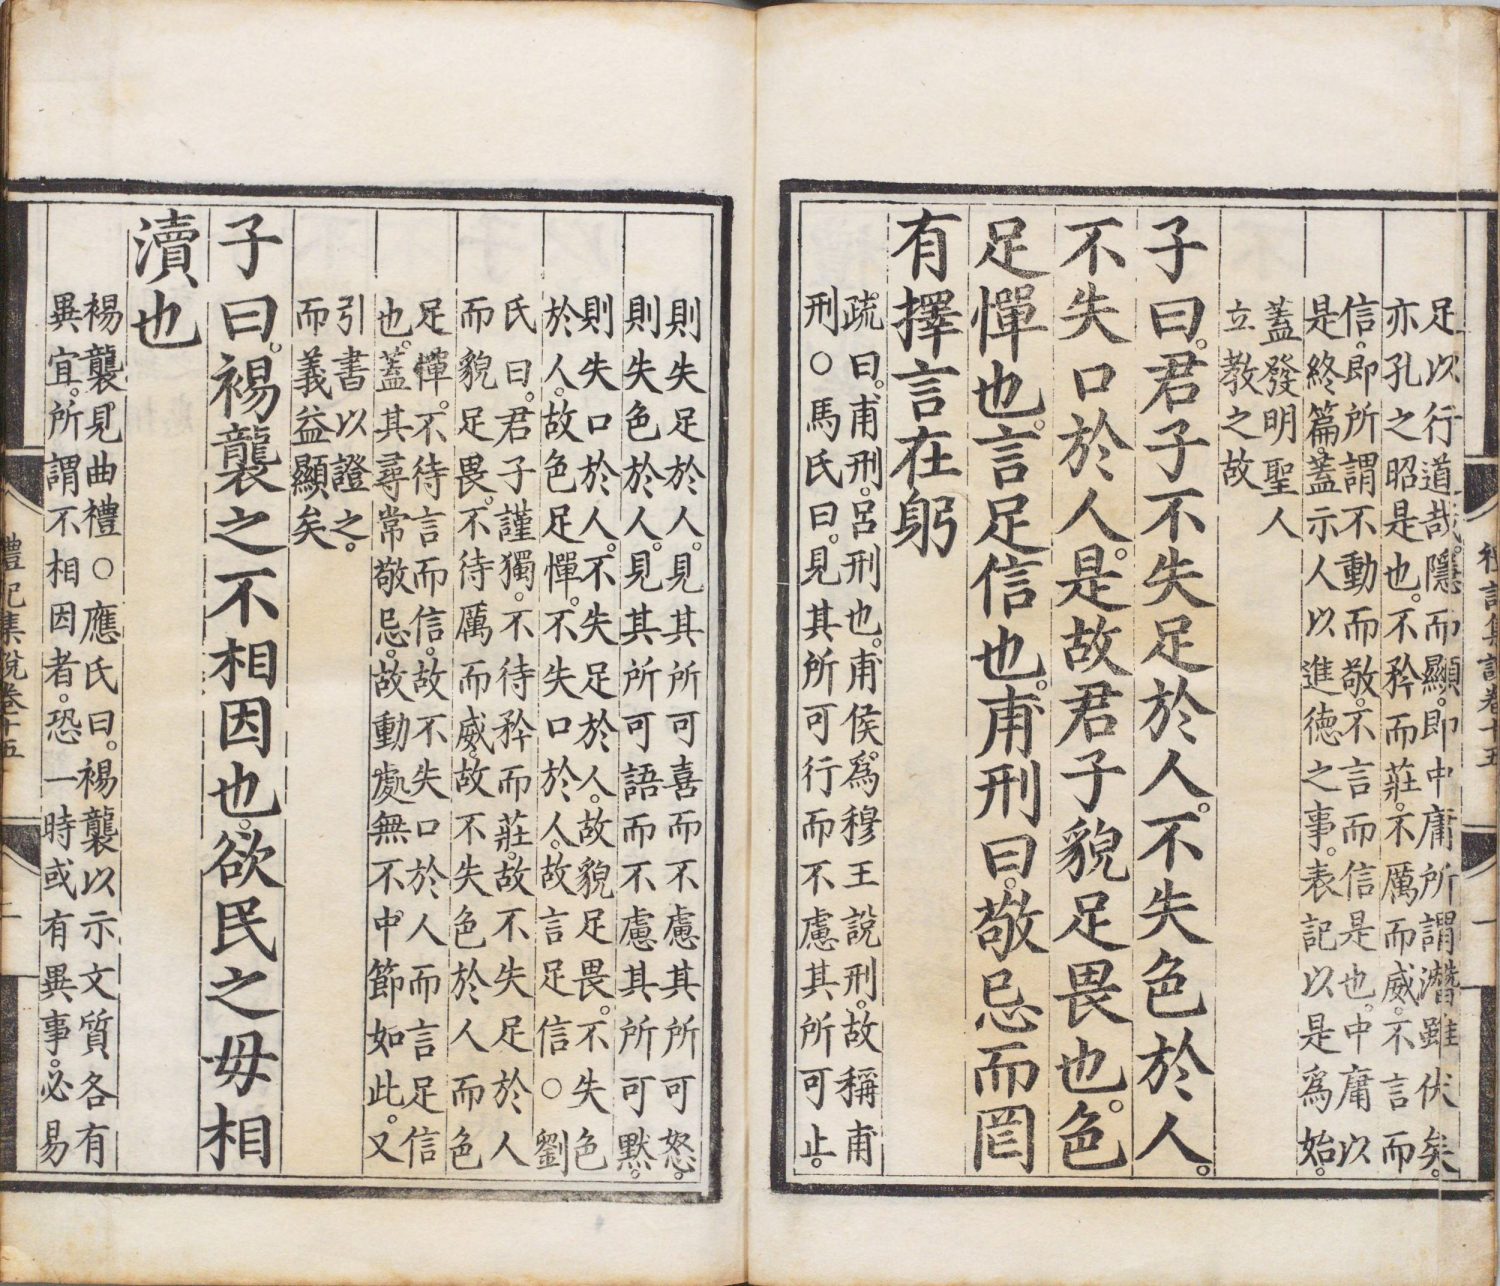 足以行道哉。隱而顯。即中庸所謂潛雖伏矣。
亦孔之昭是也。不矜而莊。不厲而威。不言而
信。即所謂不動而敬。不言而信是也。中庸以
是終篇。蓋示人以進德之事。表記以是爲始。
蓋發明聖人
立教之故
子曰。君子不失足於人。不失色於人。
不失口於人。是故君子貌足畏也。色
足憚也。言足信也。甫刑曰。敬忌而罔
有擇言在躬
疏曰。甫刑。呂刑也。甫侯。爲穆王說刑。故稱甫
刑○馬氏曰。見其所可行而不慮其所可止。
則失足於人。見其所可喜而不慮其所可怒。
則失色於人。見其所可語而不慮其所可默。
則失口於人。不失足於人。故貌足畏。不失色
於人。故色足憚。不失口於人。故言足信○劉
氏曰。君子謹獨。不待矜而莊。故不失足於人
而貌足畏。不待厲而威。故不失色於人而色
足憚。不待言而信。故不失口於人而言足信
也。蓋其尋常敬忌。故動處無不中節如此。又
引書以證之。
而義益顯矣
子曰。裼襲之不相因也。欲民之毋相
瀆也
裼襲見曲禮○應氏曰。裼襲以示文質各有
異宜。所謂不相因者。恐一時或有異事。必易
禮記集說卷十五